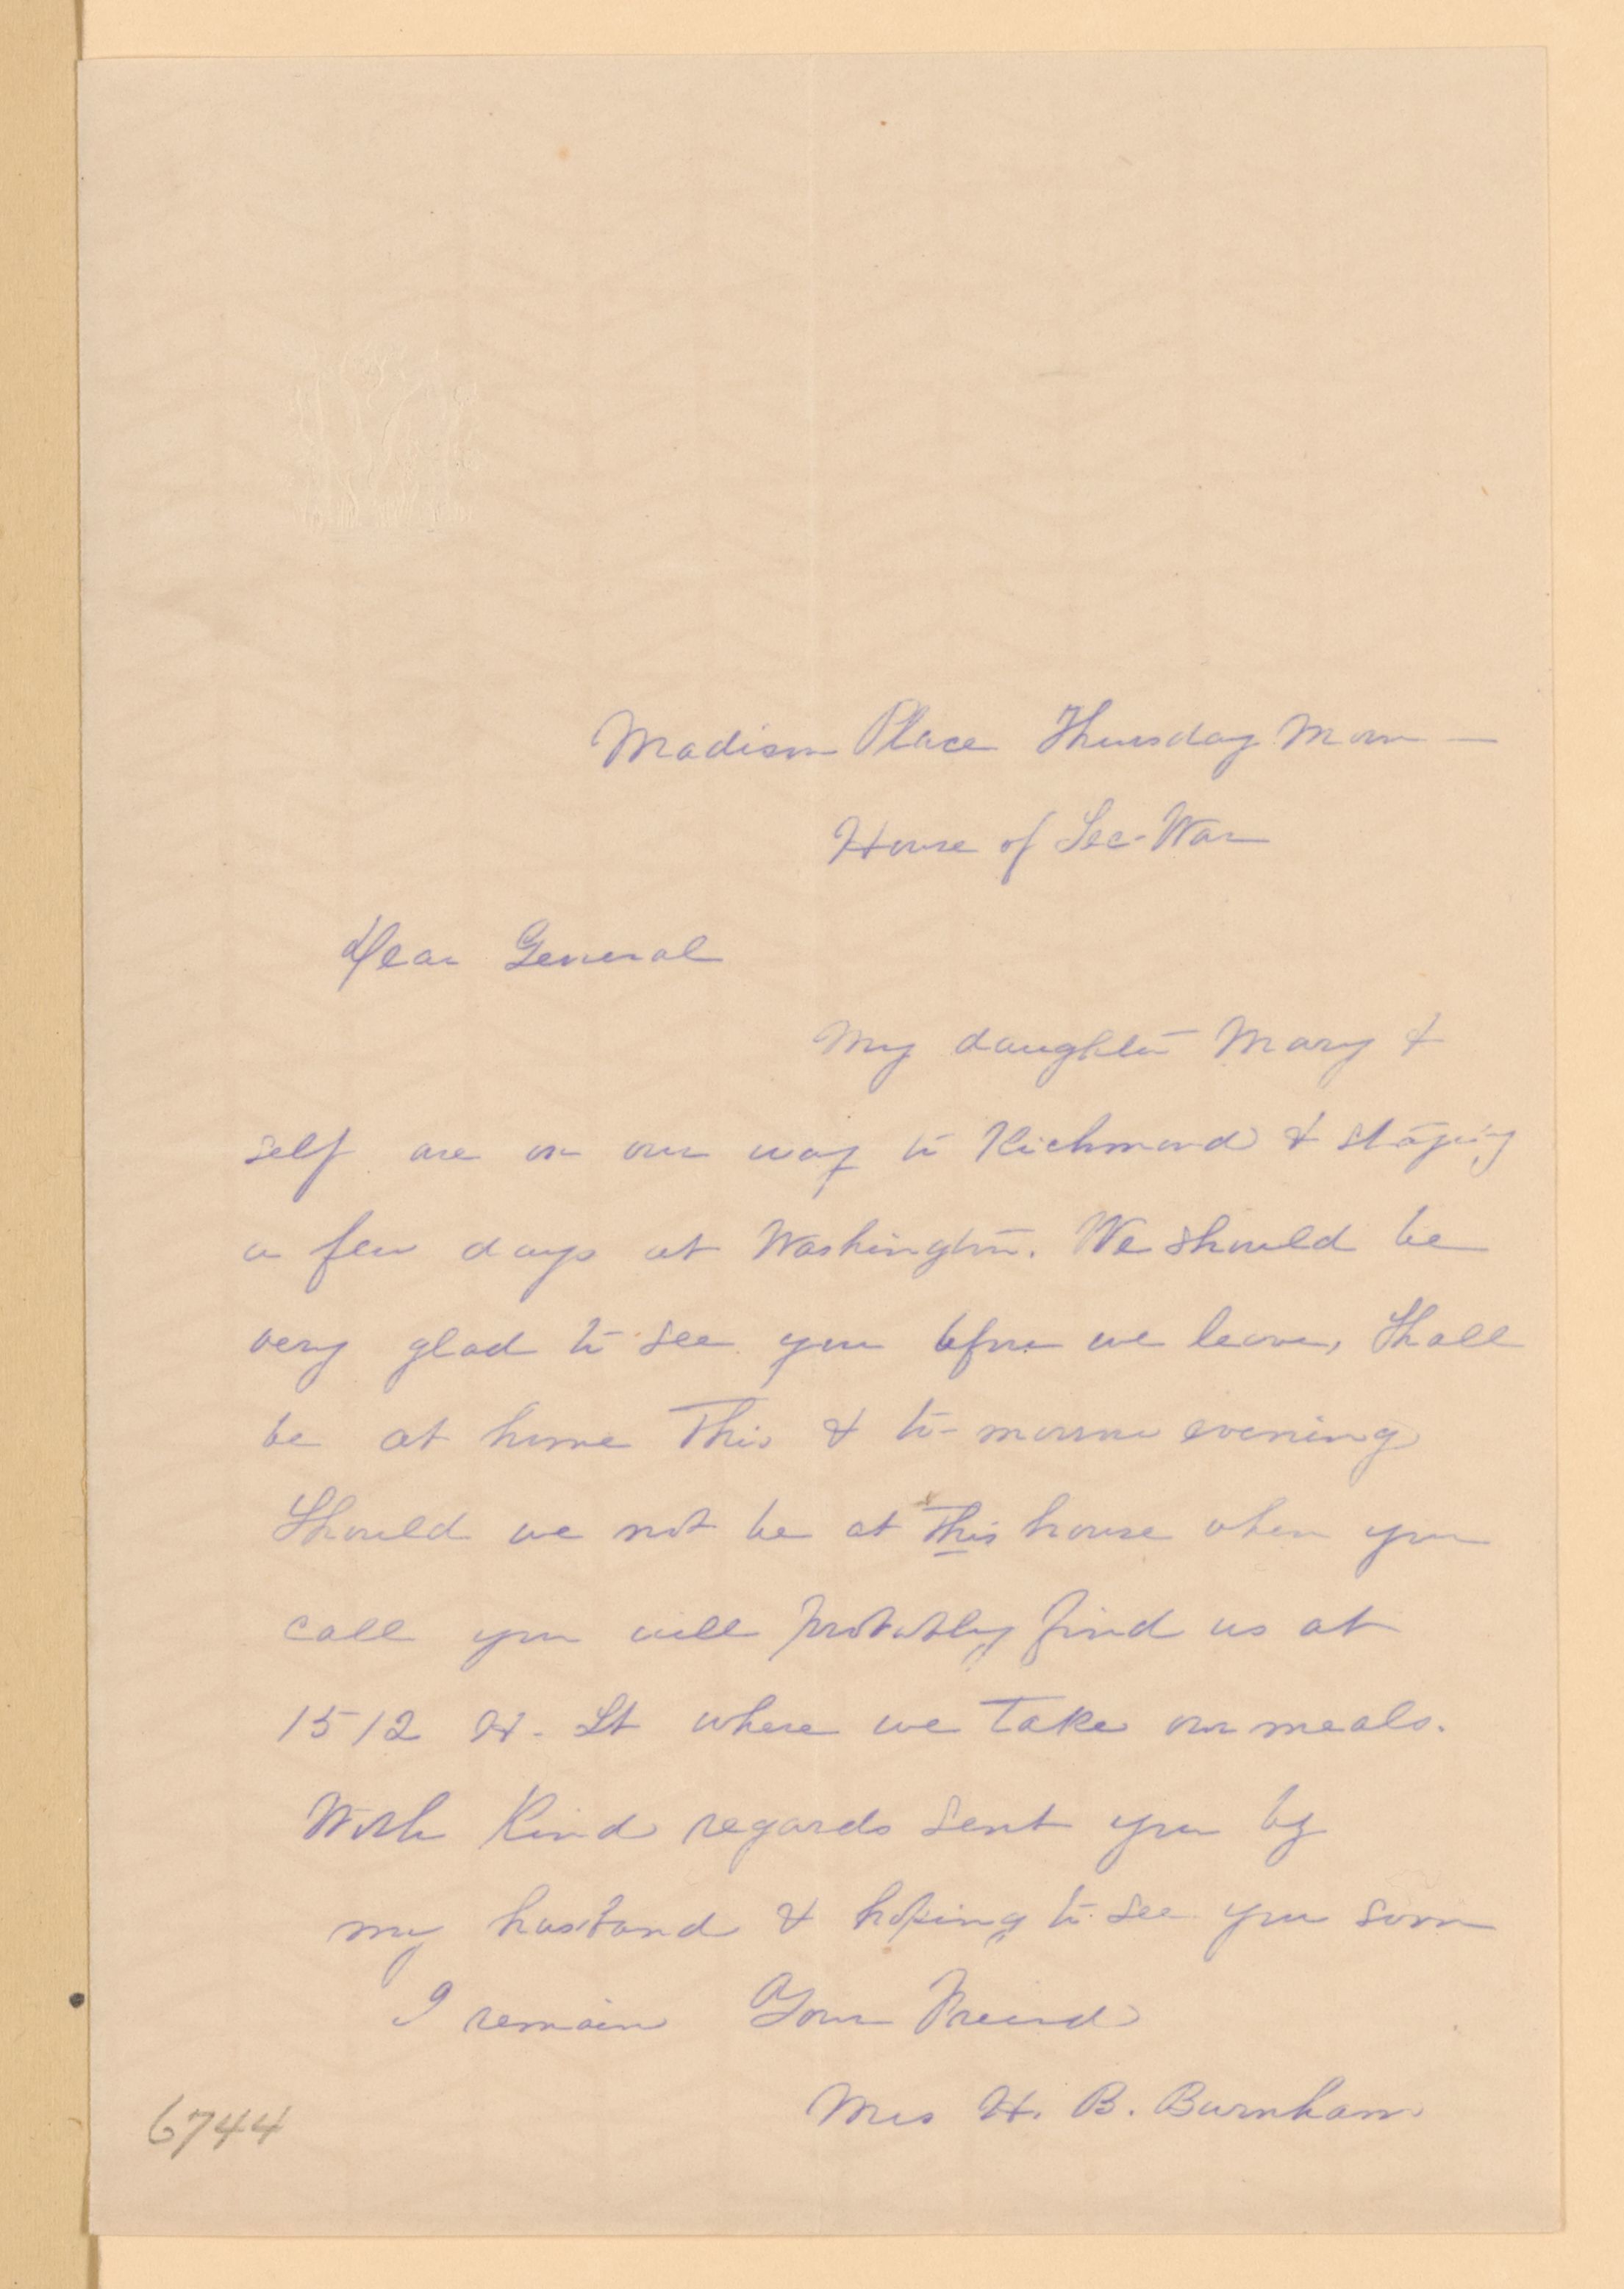 Madison Place Thursday Morn —
House of Sec- War
Dear General
My daughter Mary &
self are on our way to Richmond & staying
a few days at Washington. We should be
very glad to see you before we leave, Shall
be at home This & to-morrow evening
Should we not be at This house when you
call you will probably find us at
1512 H. St where we Take our meals.
With Kind regards sent you by
my husband & hoping to see you soon
I remain Your Freind
Mrs H. B. Burnham
6744